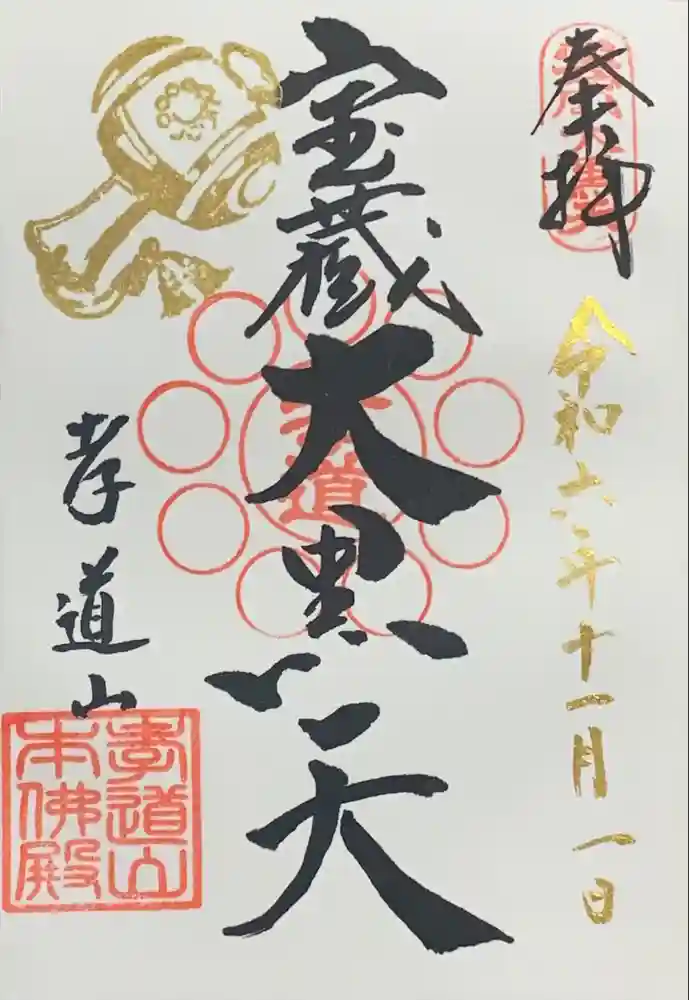 奉拝
令和六年十一月一日
宝蔵
大黒天
孝道
孝道山
孝道山
本佛殿